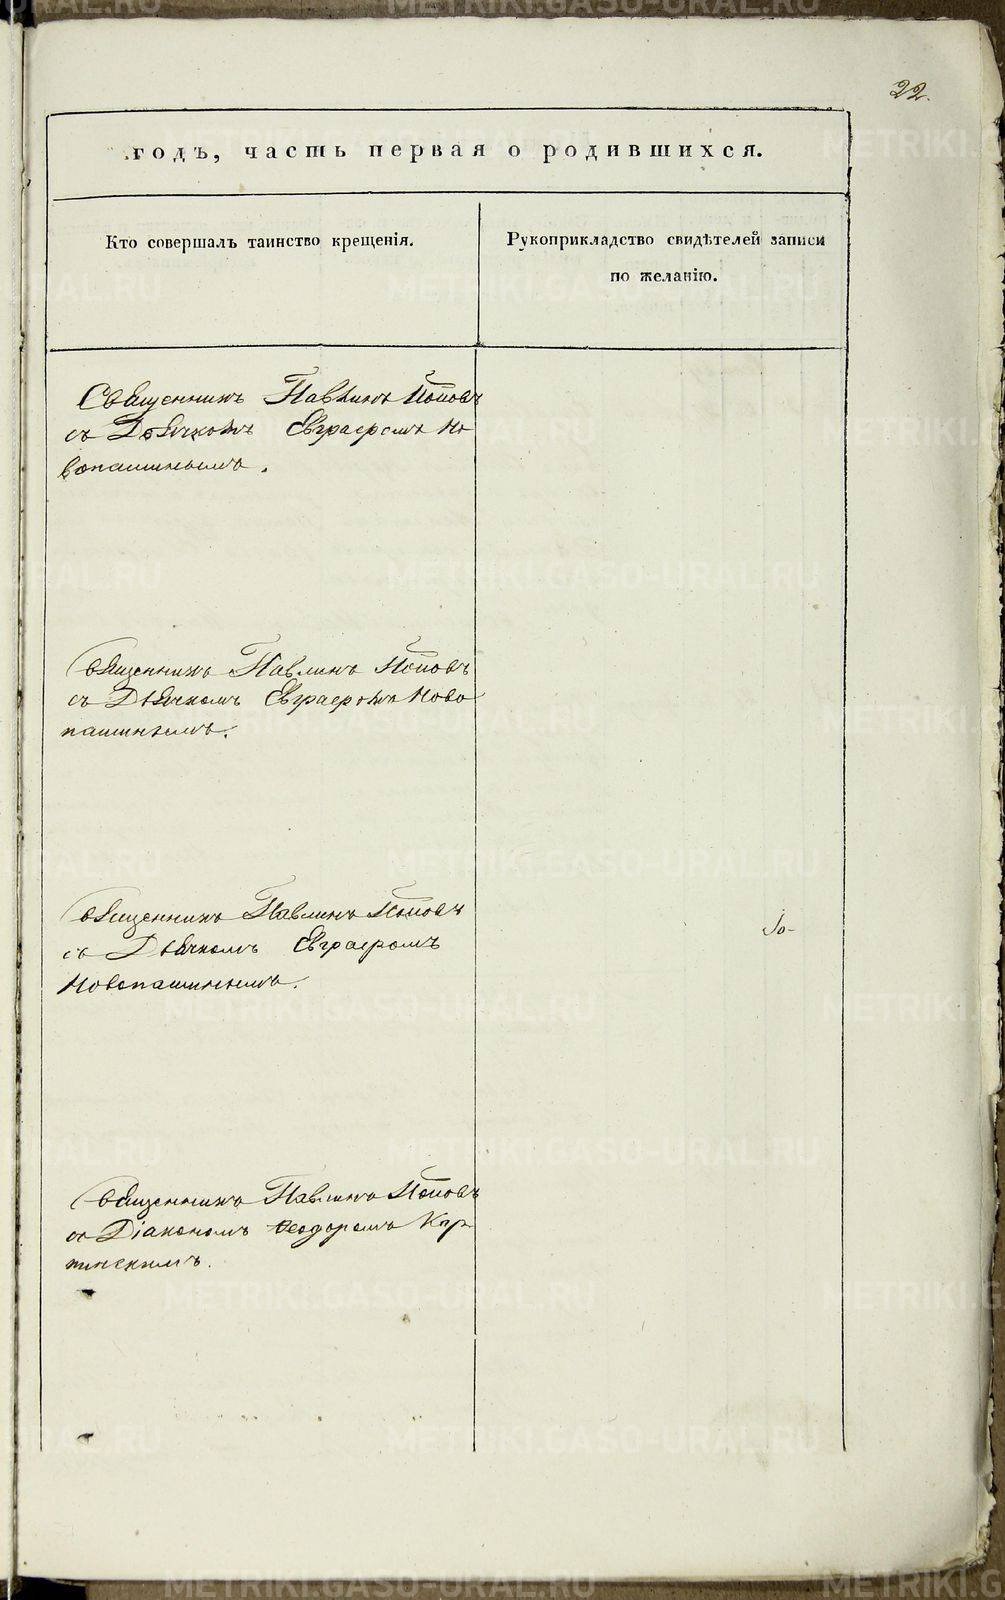 22.
годъ, часть первая о родившихся.
Кто совершалъ таинство крещенія.
Рукоприкладство свидѣтелей записи
по желанію.
Священникъ Павлинъ Поповъ
съ Дьячкомъ Евграфомъ Но
вопашинымъ.
Священникъ Павлинъ Поповъ
съ Дьячкомъ Евграфомъ Ново
пашинымъ.
Священникъ Павлинъ Поповъ
съ Дьячкомъ Евграфомъ
Новопашинымъ.
Священникъ Павлинъ Поповъ
съ Діакономъ Ѳеодоромъ Кар
пинскимъ.
METRIKI.GASO-URAL.RU